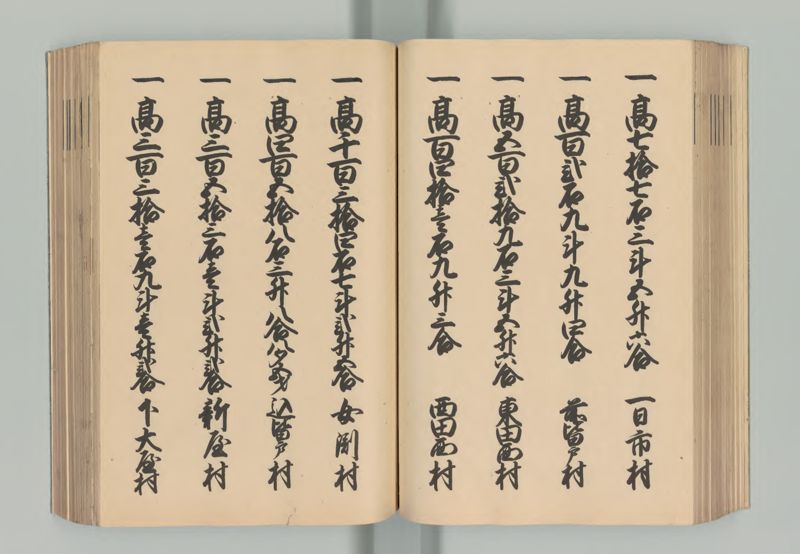 一高七拾七石三斗五升六合 一日市村
一高百弐石九斗九升四合 前留戸村
一高五百弐拾九石三斗五升六合 東田面村
一高百四拾壱石九升三合 西田面村
一高千百三拾四石七斗弐升五合 女渕村
一高四百五拾八石三升八合八夕 込皆戸村
一高三百五拾三石壱斗弐升弐合 新屋村
一高三百三拾壱石九斗壱升弐合 下大屋村